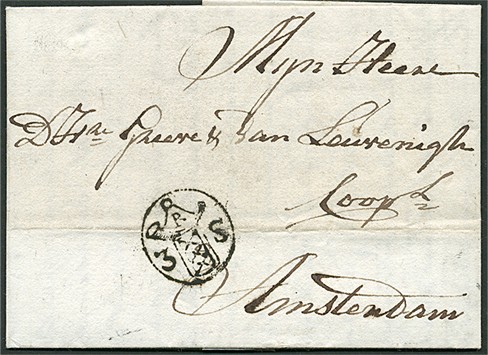 Mijn Heere
D'Hre Greeve & Van Leuvenigh
Coopl
Amsterdam
3 S